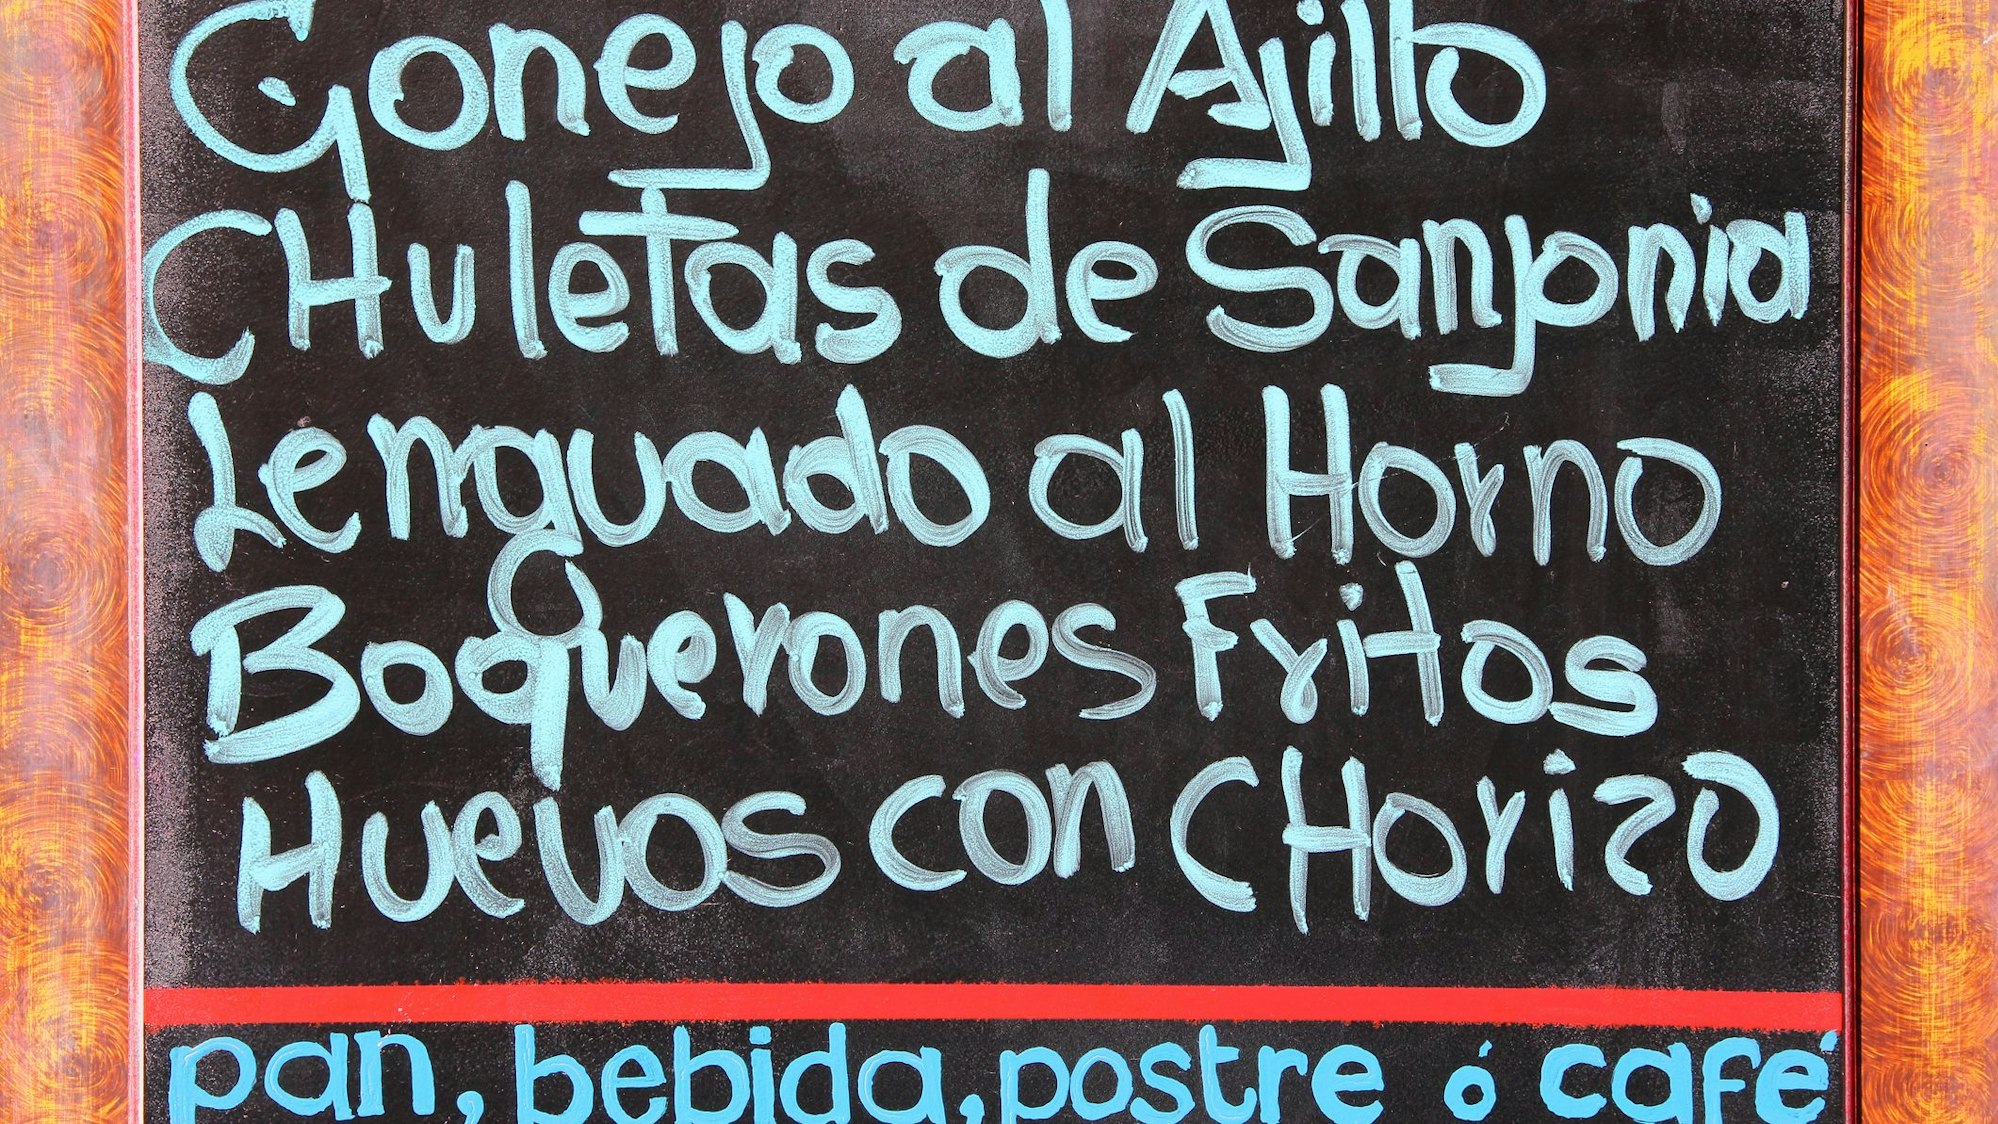 Conejo al Ajillo
CHuleTas de Sanjonia
Lenguado al Horno
Boquerones Fritos
Huevos con CHorizo
pan, bebida, postre ó café